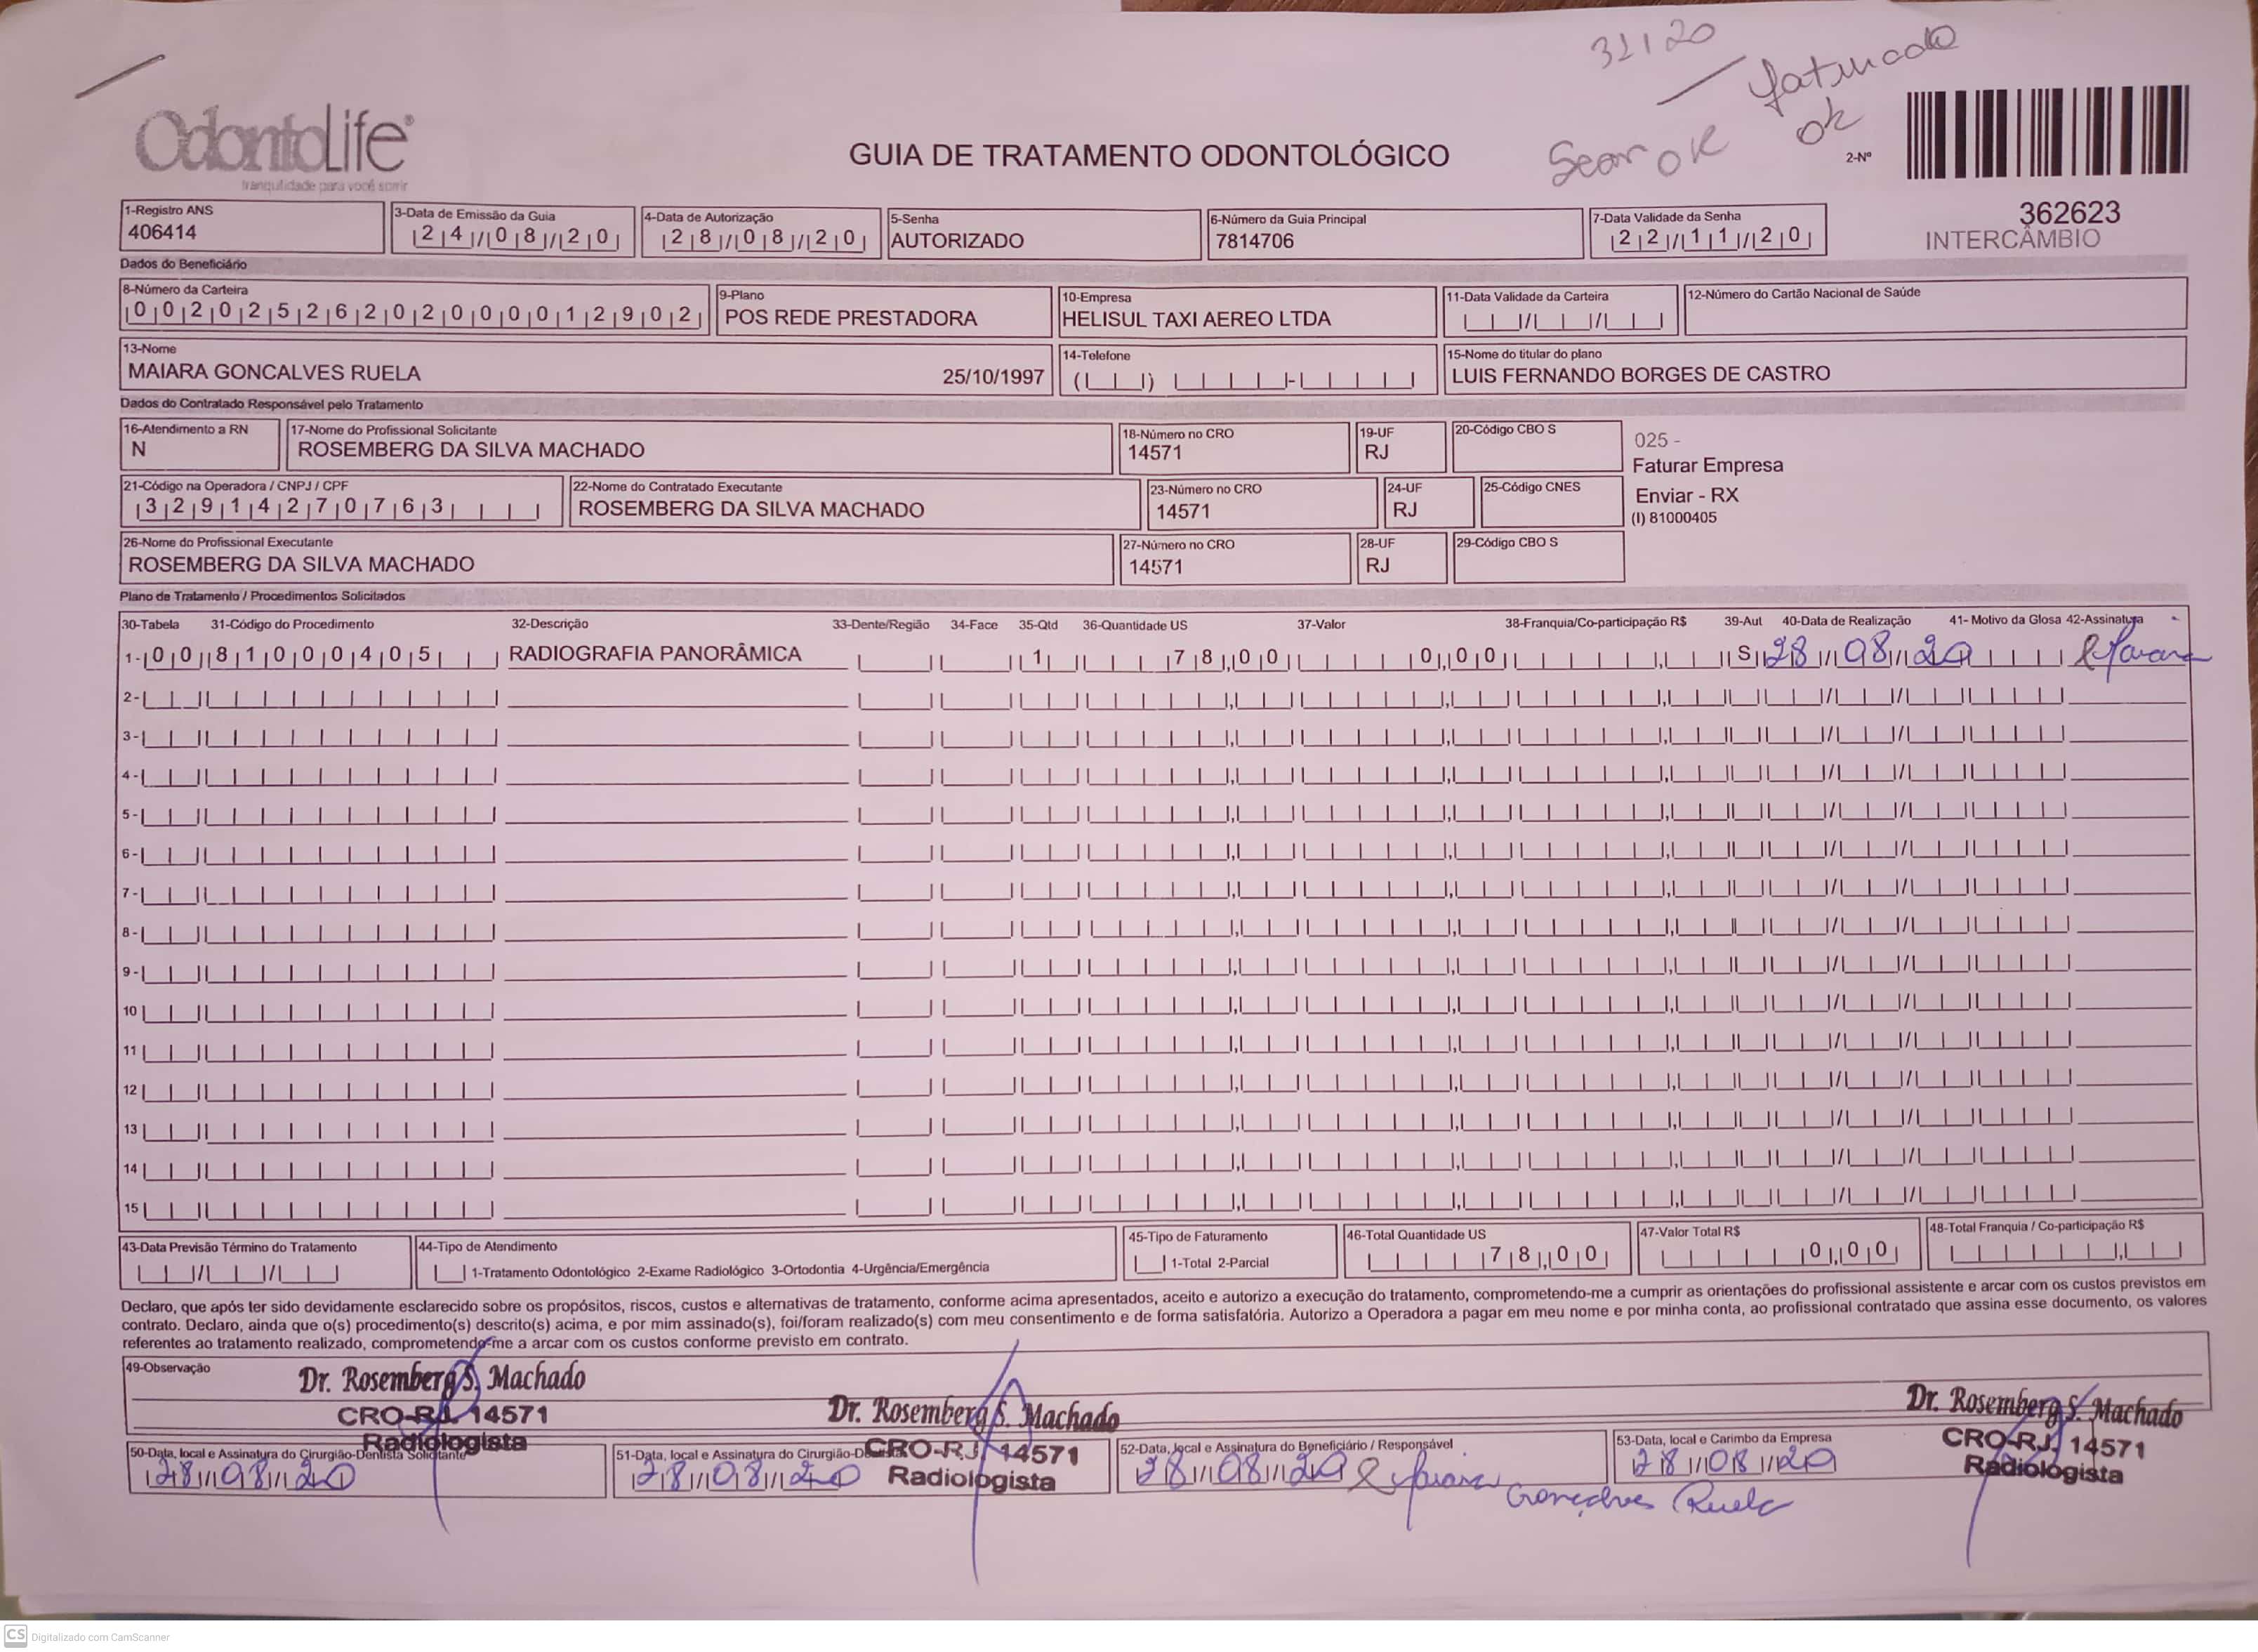 32120
faturado
ok
Scan OK
OdontoLife®
tranquilidade para você sorrir
GUIA DE TRATAMENTO ODONTOLÓGICO
2-Nº
362623
INTERCÂMBIO
1-Registro ANS
406414
3-Data de Emissão da Guia
24/08/20
4-Data de Autorização
28/08/20
5-Senha
AUTORIZADO
6-Número da Guia Principal
7814706
7-Data Validade da Senha
22/11/20
Dados do Beneficiário
8-Número da Carteira
00202526202000012902
9-Plano
POS REDE PRESTADORA
10-Empresa
HELISUL TAXI AEREO LTDA
11-Data Validade da Carteira
12-Número do Cartão Nacional de Saúde
13-Nome
MAIARA GONCALVES RUELA 25/10/1997
14-Telefone
15-Nome do titular do plano
LUIS FERNANDO BORGES DE CASTRO
Dados do Contratado Responsável pelo Tratamento
16-Atendimento a RN
N
17-Nome do Profissional Solicitante
ROSEMBERG DA SILVA MACHADO
18-Número no CRO
14571
19-UF
RJ
20-Código CBO S
025 -
Faturar Empresa
Enviar - RX
(I) 81000405
21-Código na Operadora / CNPJ / CPF
32914270763
22-Nome do Contratado Executante
ROSEMBERG DA SILVA MACHADO
23-Número no CRO
14571
24-UF
RJ
25-Código CNES
26-Nome do Profissional Executante
ROSEMBERG DA SILVA MACHADO
27-Número no CRO
14571
28-UF
RJ
29-Código CBO S
Plano de Tratamento / Procedimentos Solicitados
30-Tabela 31-Código do Procedimento 32-Descrição 33-Dente/Região 34-Face 35-Qtd 36-Quantidade US 37-Valor 38-Franquia/Co-participação R$ 39-Aut 40-Data de Realização 41- Motivo da Glosa 42-Assinatura
1- 00 81000405 RADIOGRAFIA PANORÂMICA 1 78,00 0,00 S 28/08/20
2-
3-
4-
5-
6-
7-
8-
9-
10
11
12
13
14
15
43-Data Previsão Término do Tratamento
44-Tipo de Atendimento
1-Tratamento Odontológico 2-Exame Radiológico 3-Ortodontia 4-Urgência/Emergência
45-Tipo de Faturamento
1-Total 2-Parcial
46-Total Quantidade US
78,00
47-Valor Total R$
0,00
48-Total Franquia / Co-participação R$
Declaro, que após ter sido devidamente esclarecido sobre os propósitos, riscos, custos e alternativas de tratamento, conforme acima apresentados, aceito e autorizo a execução do tratamento, comprometendo-me a cumprir as orientações do profissional assistente e arcar com os custos previstos em
contrato. Declaro, ainda que o(s) procedimento(s) descrito(s) acima, e por mim assinado(s), foi/foram realizado(s) com meu consentimento e de forma satisfatória. Autorizo a Operadora a pagar em meu nome e por minha conta, ao profissional contratado que assina esse documento, os valores
referentes ao tratamento realizado, comprometendo-me a arcar com os custos conforme previsto em contrato.
49-Observação
Dr. Rosemberg S. Machado
CRO-RJ. 14571
Radiologista
Dr. Rosemberg S. Machado
CRO-RJ. 14571
Radiologista
Dr. Rosemberg S. Machado
CRO-RJ. 14571
Radiologista
50-Data, local e Assinatura do Cirurgião-Dentista Solicitante
28/08/20
51-Data, local e Assinatura do Cirurgião-Dentista
28/08/20
52-Data, local e Assinatura do Beneficiário / Responsável
28/08/20 Maiara
Gonçalves Ruela
53-Data, local e Carimbo da Empresa
28/08/20
CS Digitalizado com CamScanner